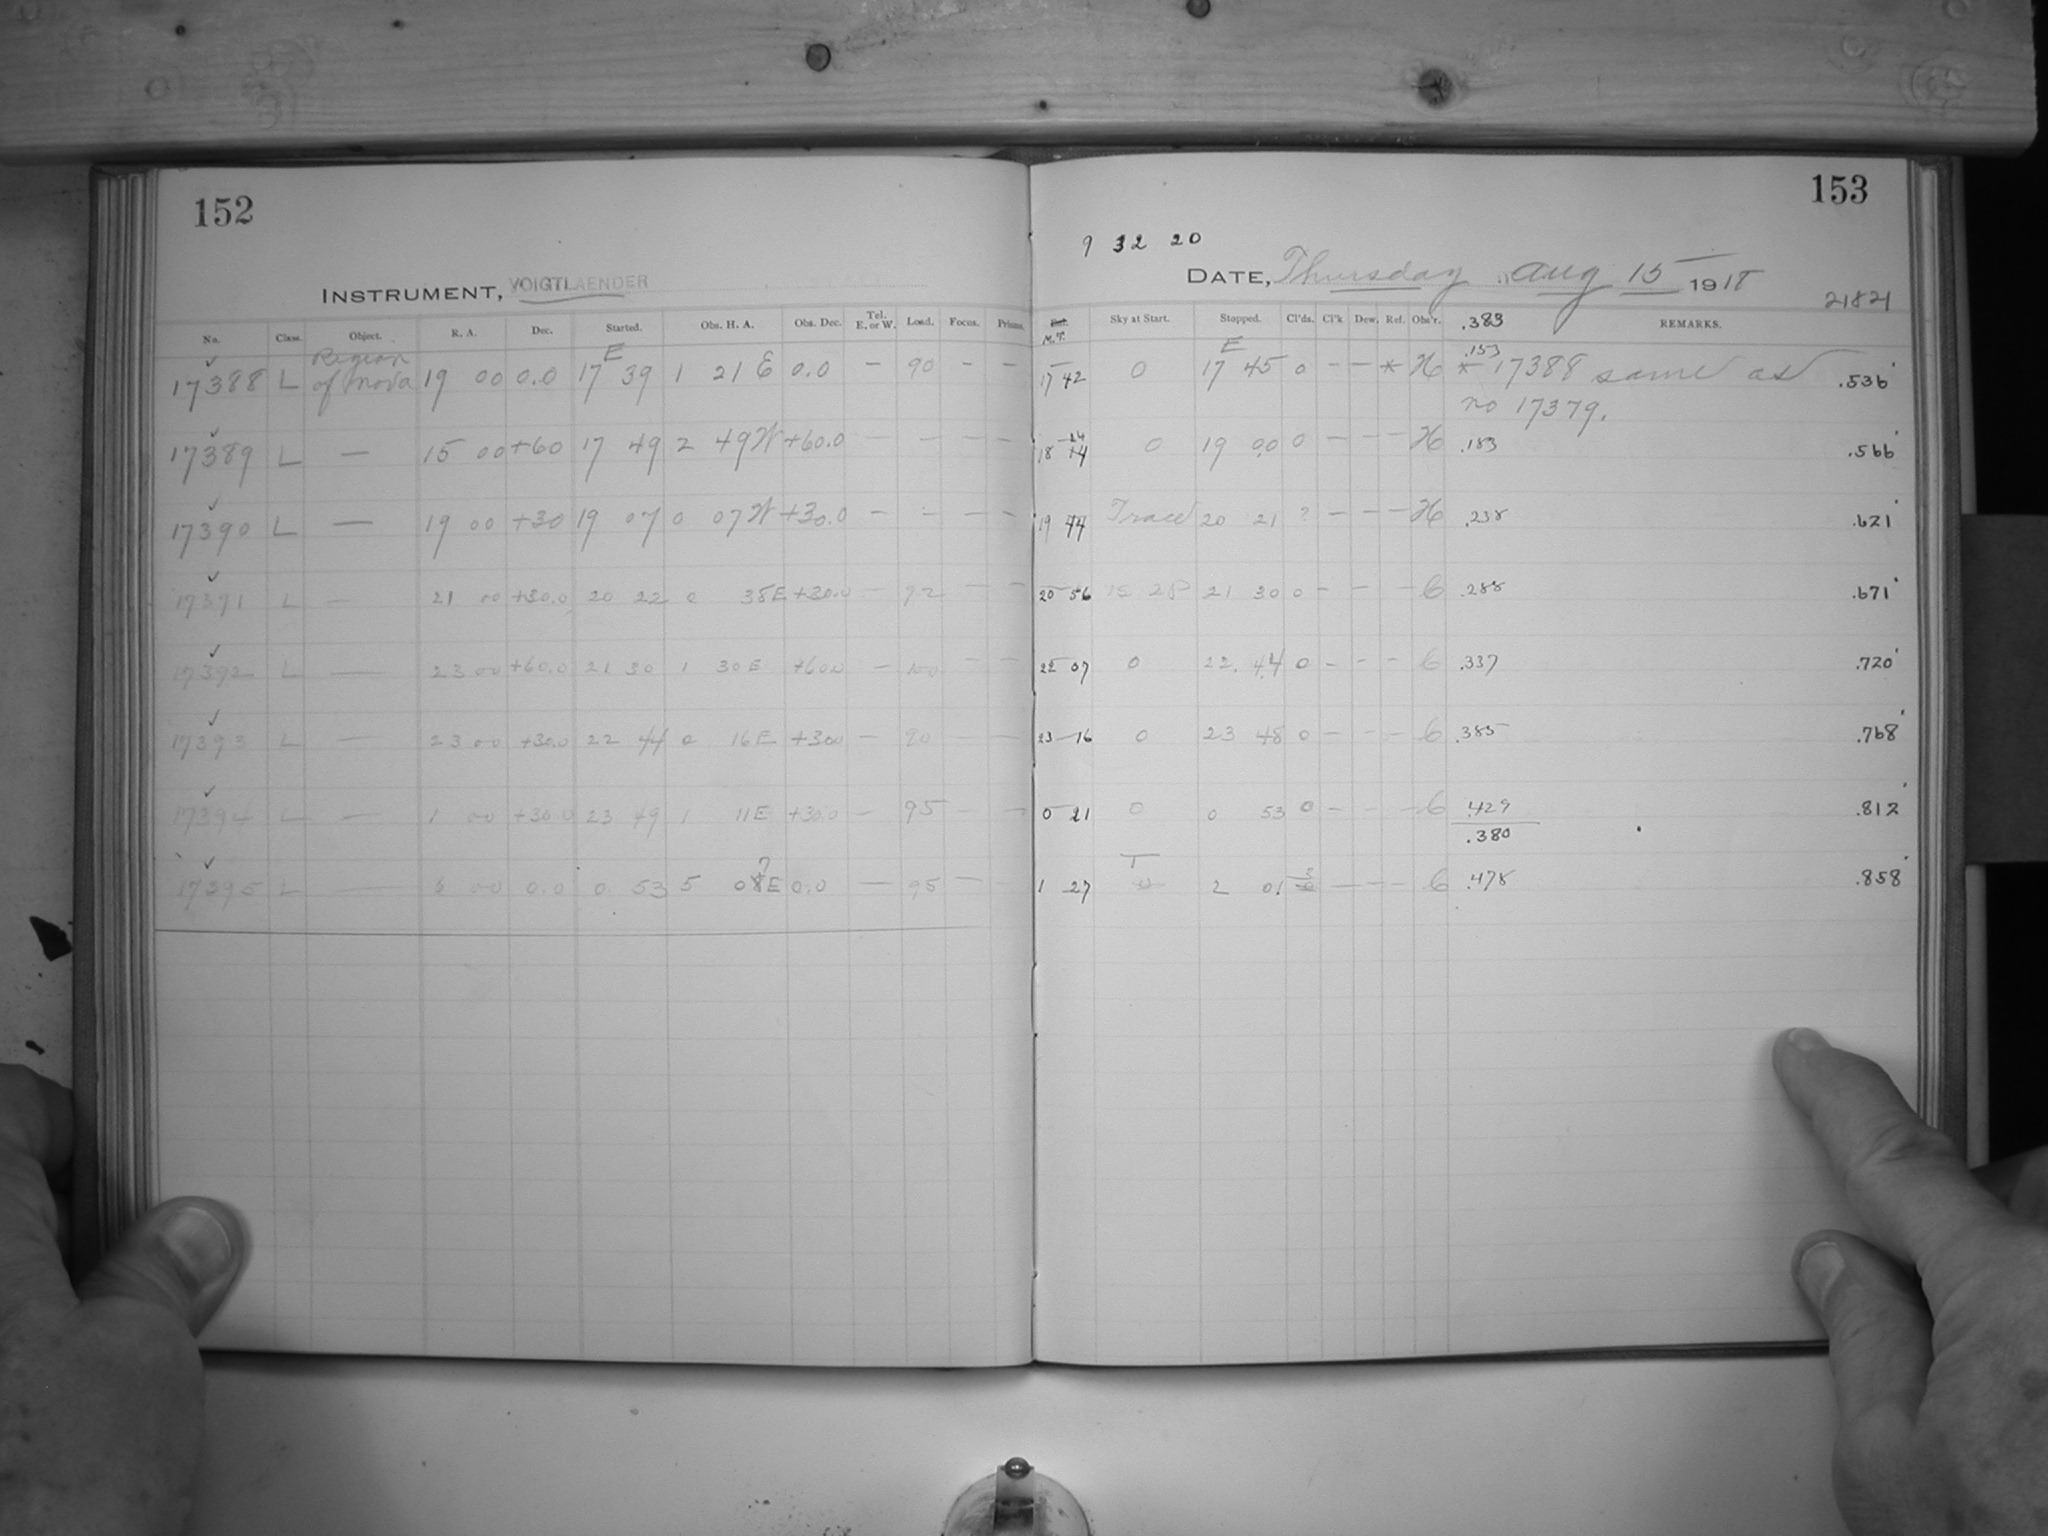 152
INSTRUMENT, VOIGTLAENDER
No. Class. Object. R. A. Dec. Started. Obs. H. A. Obs. Dec. Tel. E. or W. Load. Focus. Prisms.
17388 L Region of Nova 19 00 0.0 E 17 39 1 21 E 0.0 — 90 — —
17389 L — 15 00 +60 17 49 2 49 W +60.0 — — — —
17390 L — 19 00 +30 19 07 0 07 W +30.0 — — — —
17391 L — 21 00 +30.0 20 22 0 38 E +30.0 — 92 — —
17392 L — 23 00 +60.0 21 30 1 30 E +60.0 — 100 — —
17393 L — 23 00 +30.0 22 44 0 16 E +30.0 — 90 — —
17394 L — 1 00 +30.0 23 49 1 11 E +30.0 — 95 — —
17395 L — 6 00 0.0 0 53 5 07 E 0.0 — 95 — —
153
9 32 20
DATE, Thursday Aug 15 1918
21821
M.T. Sky at Start. Stopped. Cl'ds. Cl'k Dew. Ref. Obs'r. .383 REMARKS.
17 42 0 E 17 45 0 — — * H .153 * 17388 same as .536
no 17379.
18 24 0 19 00 0 — — — H .183 .566
19 44 Trace 20 21 ? — — — H .238 .621
20 56 21 30 0 — — — G .288 .671
22 07 0 22 44 0 — — — G .337 .720
23 16 0 23 48 0 — — — G .385 .768
0 21 0 0 53 0 — — — G .429 .812
.380
1 27 T 2 01 — — — G .478 .858